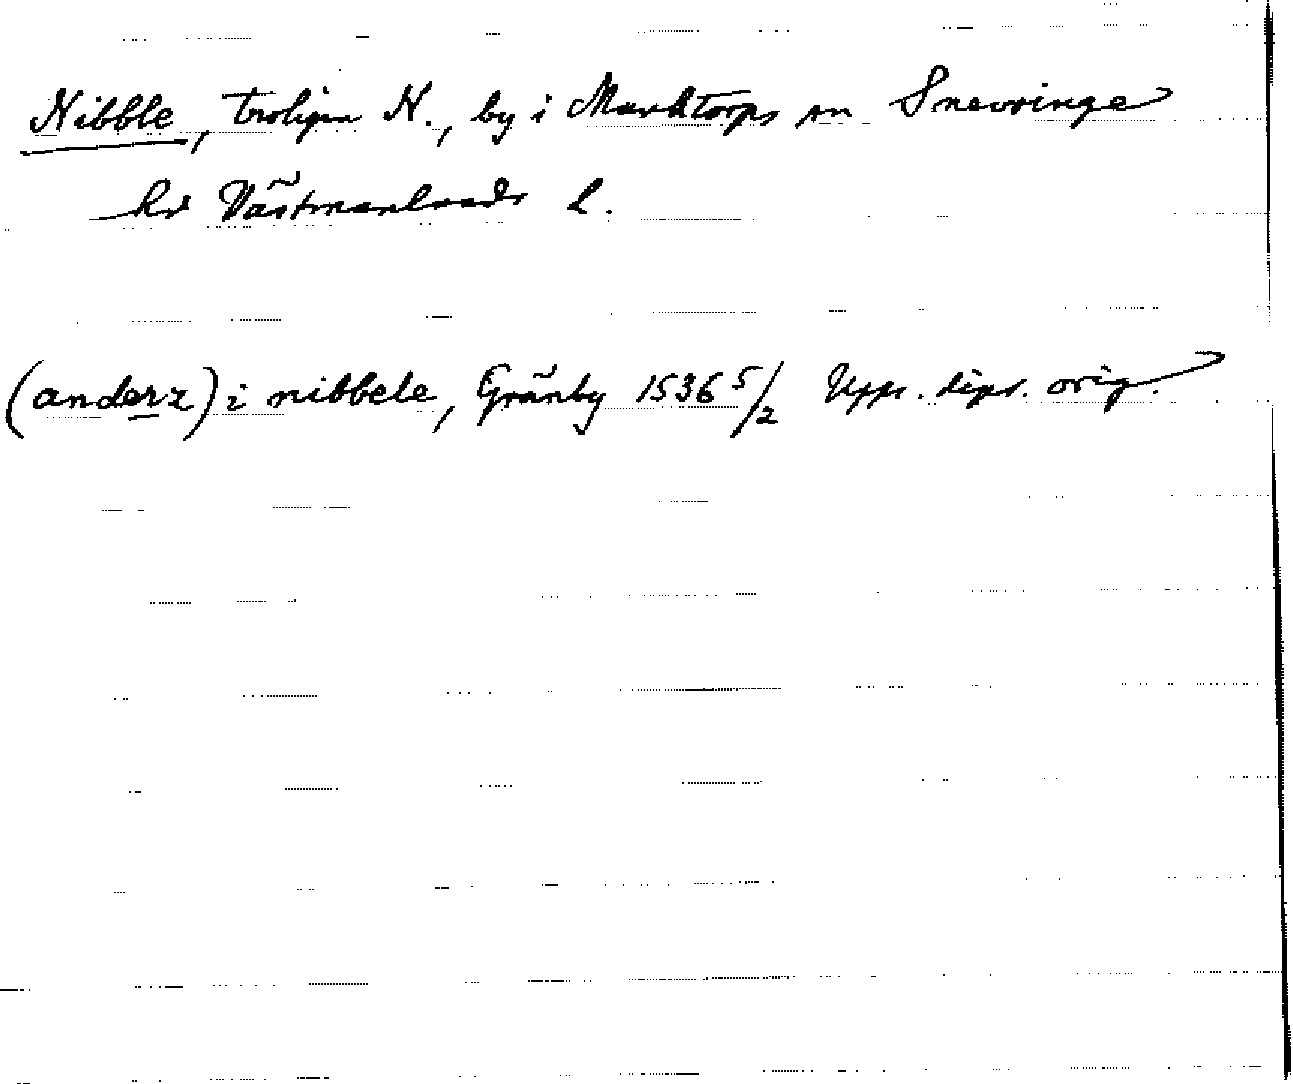 Nibble, troligen N., by i Munktorps sn Snevringe
hd Västmanlands l.
(anderz) i nibbele, Gränby 1536 5/2 Upps. dipl. orig.